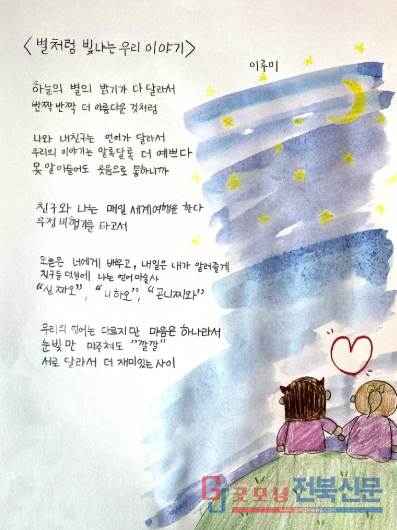 <별처럼 빛나는 우리 이야기>
이루미
하늘의 별의 밝기가 다 달라서
반짝 반짝 더 아름다운 것처럼
나와 내친구는 언어가 달라서
우리의 이야기는 알록달록 더 예쁘다
못 알아들어도 웃음으로 통하니까
친구와 나는 매일 세계여행을 한다
우정 비행기를 타고서
오늘은 너에게 배우고, 내일은 내가 알려줄게
친구들 덕분에 나는 언어마술사
"신짜오", "니하오", "곤니찌와"
우리의 언어는 다르지만 마음은 하나라서
눈빛만 마주쳐도 "깔깔"
서로 달라서 더 재미있는 사이
굿모닝전북신문